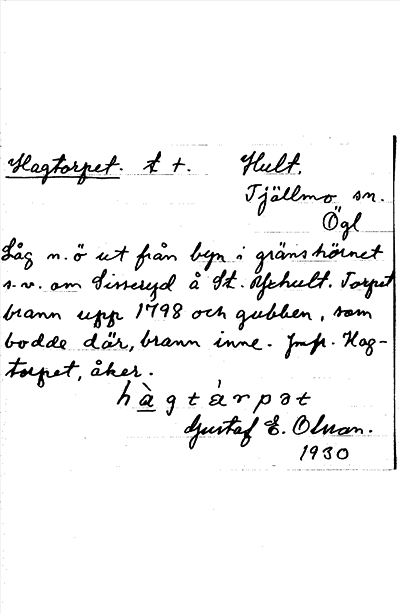 Hagtorpet. t +. Hult.
Tjällmo sn.
Ögl
Låg n.ö ut från byn i gränshörnet
s.v. om Sisseryd å St. Ryckhult. Torpet
brann upp 1798 och gubben, som
bodde där, brann inne. Jmfr. Hag-
torpet, åker.
hàgtárpət
Gustaf E. Olsson.
1930